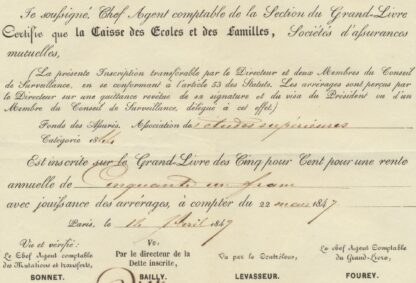 Je soussigné, Chef Agent comptable de la Section du Grand-Livre
Certifie que la Caisse des Ecoles et des Familles, Sociétés d'assurances
mutuelles,
(La présente Inscription transférable par le Directeur et deux Membres du Conseil
de Surveillance, en se conformant à l'article 53 des Statuts. Les arrérages sont perçus par
le Directeur sur une quittance revêtue de sa signature et du visa du Président ou d'un
Membre du Conseil de Surveillance, délégué à cet effet.)
Fonds des Assurés Association des études supérieures
Catégorie 18
Est inscrite sur le Grand-Livre des Cinq pour Cent pour une rente
annuelle de Cinquante un franc
avec jouissance des arrérages, à compter du 22 mars 1847
Paris, le avril 1847
Vu et vérifié: Vu: Vu par le Contrôleur, Le Chef Agent Comptable
Le Chef Agent comptable Par le directeur de la du Grand-Livre,
des Mutations et transferts, Dette inscrite,
BONNET. BAILLY. LEVASSEUR. FOUREY.